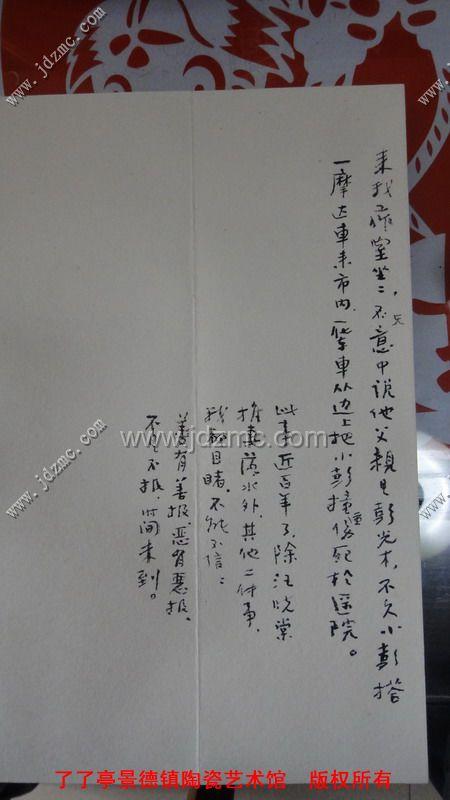 来我家室坐坐，无不意中说他父亲见彭光木，不久小彭搭
一摩达车来市内，一货车从边上把小彭撞重伤死于医院。
此事近百年了，除汪晓棠
推妻落水外，其他二件事，
我都目睹，不能不信：
善有善报，恶有恶报，
不是不报，时间未到。
www.jdzmc.com
了了亭景德镇陶瓷艺术馆 版权所有